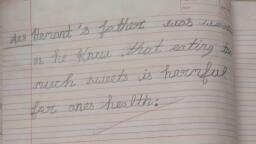 Ans Hemant's father was
as he knew that eating
much sweets is harmful
for ones health.